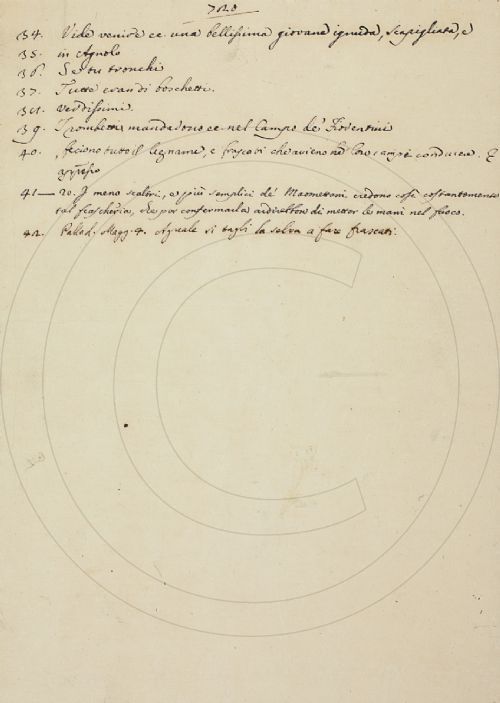 34. Vide venire ec. una bellissima giovane ignuda, scapigliata, e
35. in Agnolo
36. Se tu tronchi
37. Tutte eran di boschetti.
38. verdissimi.
39. I rombetti mandarono ec. nel Campo de' Fiorentini
40. feciono tutto il legname, e frascati che avieno nel loro campo condurre. E
appresso
41— 20. I meno scaltri, e più semplici de' Maomettani credono così costantemente
tal frascheria, che per confermarla ardirebbon di metter le mani nel fuoco.
42. Pallad. Magg. 4. Aguale si tagli la selva a fare frascati.